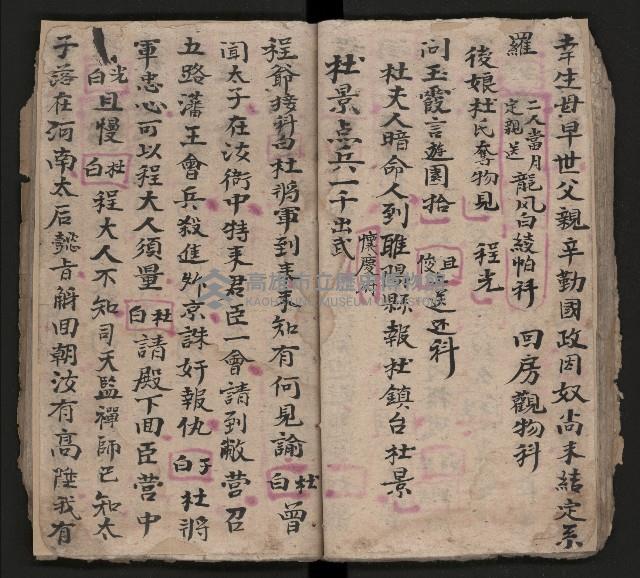 幸生母早世父親辛勤國政因奴尚未結定系
羅 二人當月定親送 龍风白綾帕科 回房觀物科
後娘杜氏奪物見 程光
问玉霞言遊園拾 且俊 送还科
杜夫人暗命人到睢陽縣報杜鎮台杜景
杜景点兵一千出武 懷慶府
程爺接科白杜將軍到来不知有何見諭 杜白 曾
闻太子在汝衙中特来君臣一會請到敝营召
五路藩王會兵殺進外京誅奸報仇 子白 杜將
軍忠心可以程大人須量 杜白 請殿下回臣营中
光白 且慢 杜白 程大人不知司天監禪師已知太
子落在河南太后懿旨解回朝汝有高陞我有
高雄市立歷史博物館
KAOHSIUNG MUSEUM OF HISTORY